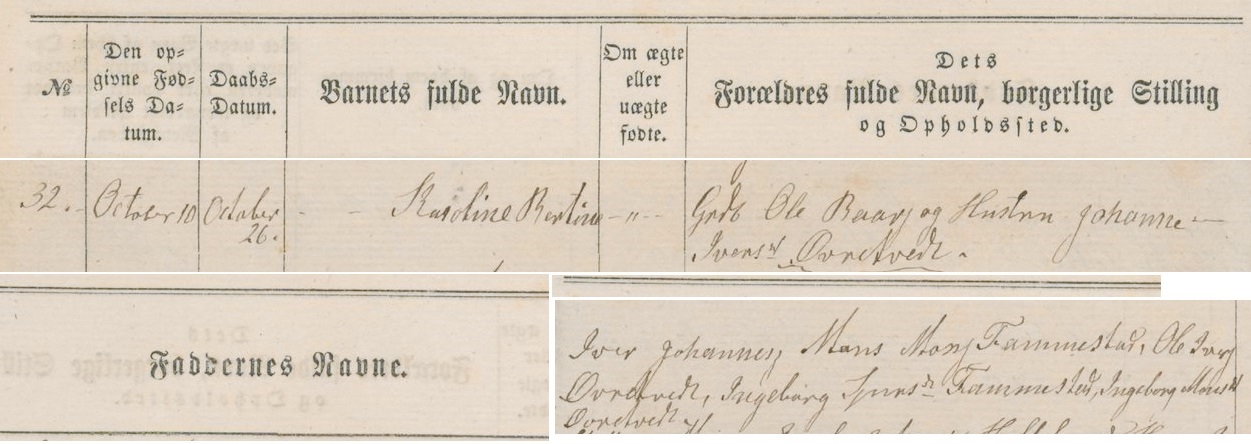 №
Den op-
givne Fød-
sels Da-
tum.
Daabs-
Datum.
Barnets fulde Navn.
Om ægte
eller
uægte
fødte.
Dets
Forældres fulde Navn, borgerlige Stilling
og Opholdssted.
32. October 10 October - - Karoline Bertine -"- Grdb Ole Baarj og Hustru Johanne
26. Iversd Øvretvedt.
Faddernes Navne.
Iver Johannesj, Mons Monsj Fammestad, Ole Iverj
Øvretvedt, Ingeborg Fammestad, Ingeborg Monsd
Øvretvedt